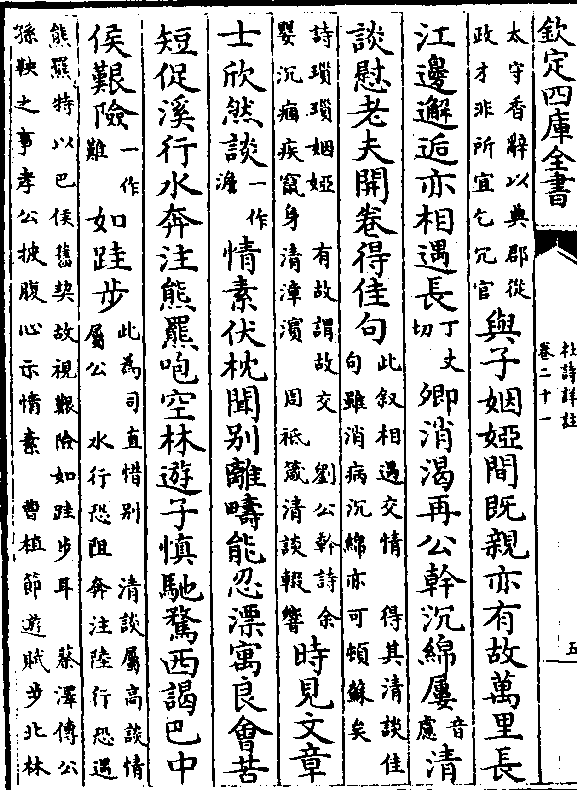 欽定四庫全書
杜詩詳註
卷二十一
五
太守香辭以典郡從
政才非所宜乞冗官
與子姻婭間既親亦有故萬里長
江邊邂逅亦相遇長
丁丈
切
卿消渴再公幹沉綿屢
音
慮
清
談慰老夫開卷得佳句
此叙相遇交情 得其清談佳
句雖消病沉綿亦可頓蘇矣
詩瑣瑣姻婭 有故謂故交 劉公幹詩余
嬰沉痼疾竄身清漳濱 周祗箴清談輟響
時見文章
士欣然談
一作
澹
情素伏枕聞别離疇能忍漂寓良會苦
短促溪行水奔注熊羆咆空林遊子慎馳騖西謁巴中
侯艱險
一作
難
如跬步
此為司直惜别 清談屬高談情
屬公 水行恐阻奔注陸行恐遇
熊羆特以巴侯舊契故視艱險如跬步耳 蔡澤傳公
孫鞅之事孝公披腹心示情素 曹植節遊賦步北林